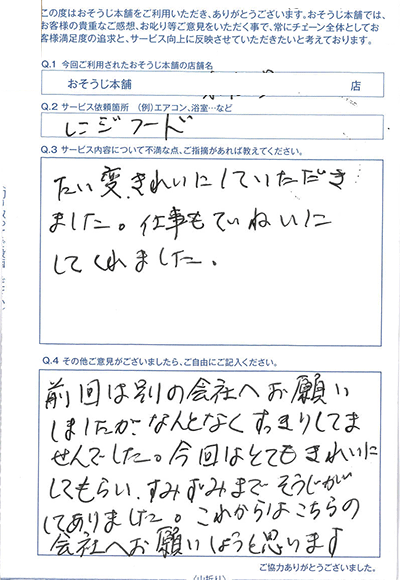 この度はおそうじ本舗をご利用いただき、ありがとうございます。おそうじ本舗では、
お客様の貴重なご感想、お叱り等ご意見をいただく事で、常にチェーン全体としてお
客様満足度の追求と、サービス向上に反映させていただきたいと考えております。
Q.1 今回ご利用されたおそうじ本舗の店舗名
おそうじ本舗 店
Q.2 サービス依頼箇所 (例)エアコン、浴室…など
レンジフード
Q.3 サービス内容について不満な点、ご指摘があれば教えてください。
たい変、きれいにしていただき
ました。仕事もていねいに
してくれました。
Q.4 その他ご意見がございましたら、ご自由にご記入ください。
前回は別の会社へお願い
しましたが、なんとなくすっきりしてま
せんでした。今回はとてもきれいに
してもらい、すみずみまでそうじが
してありました。これからはこちらの
会社へお願いしようと思います
ご協力ありがとうございました。
〈山折り〉